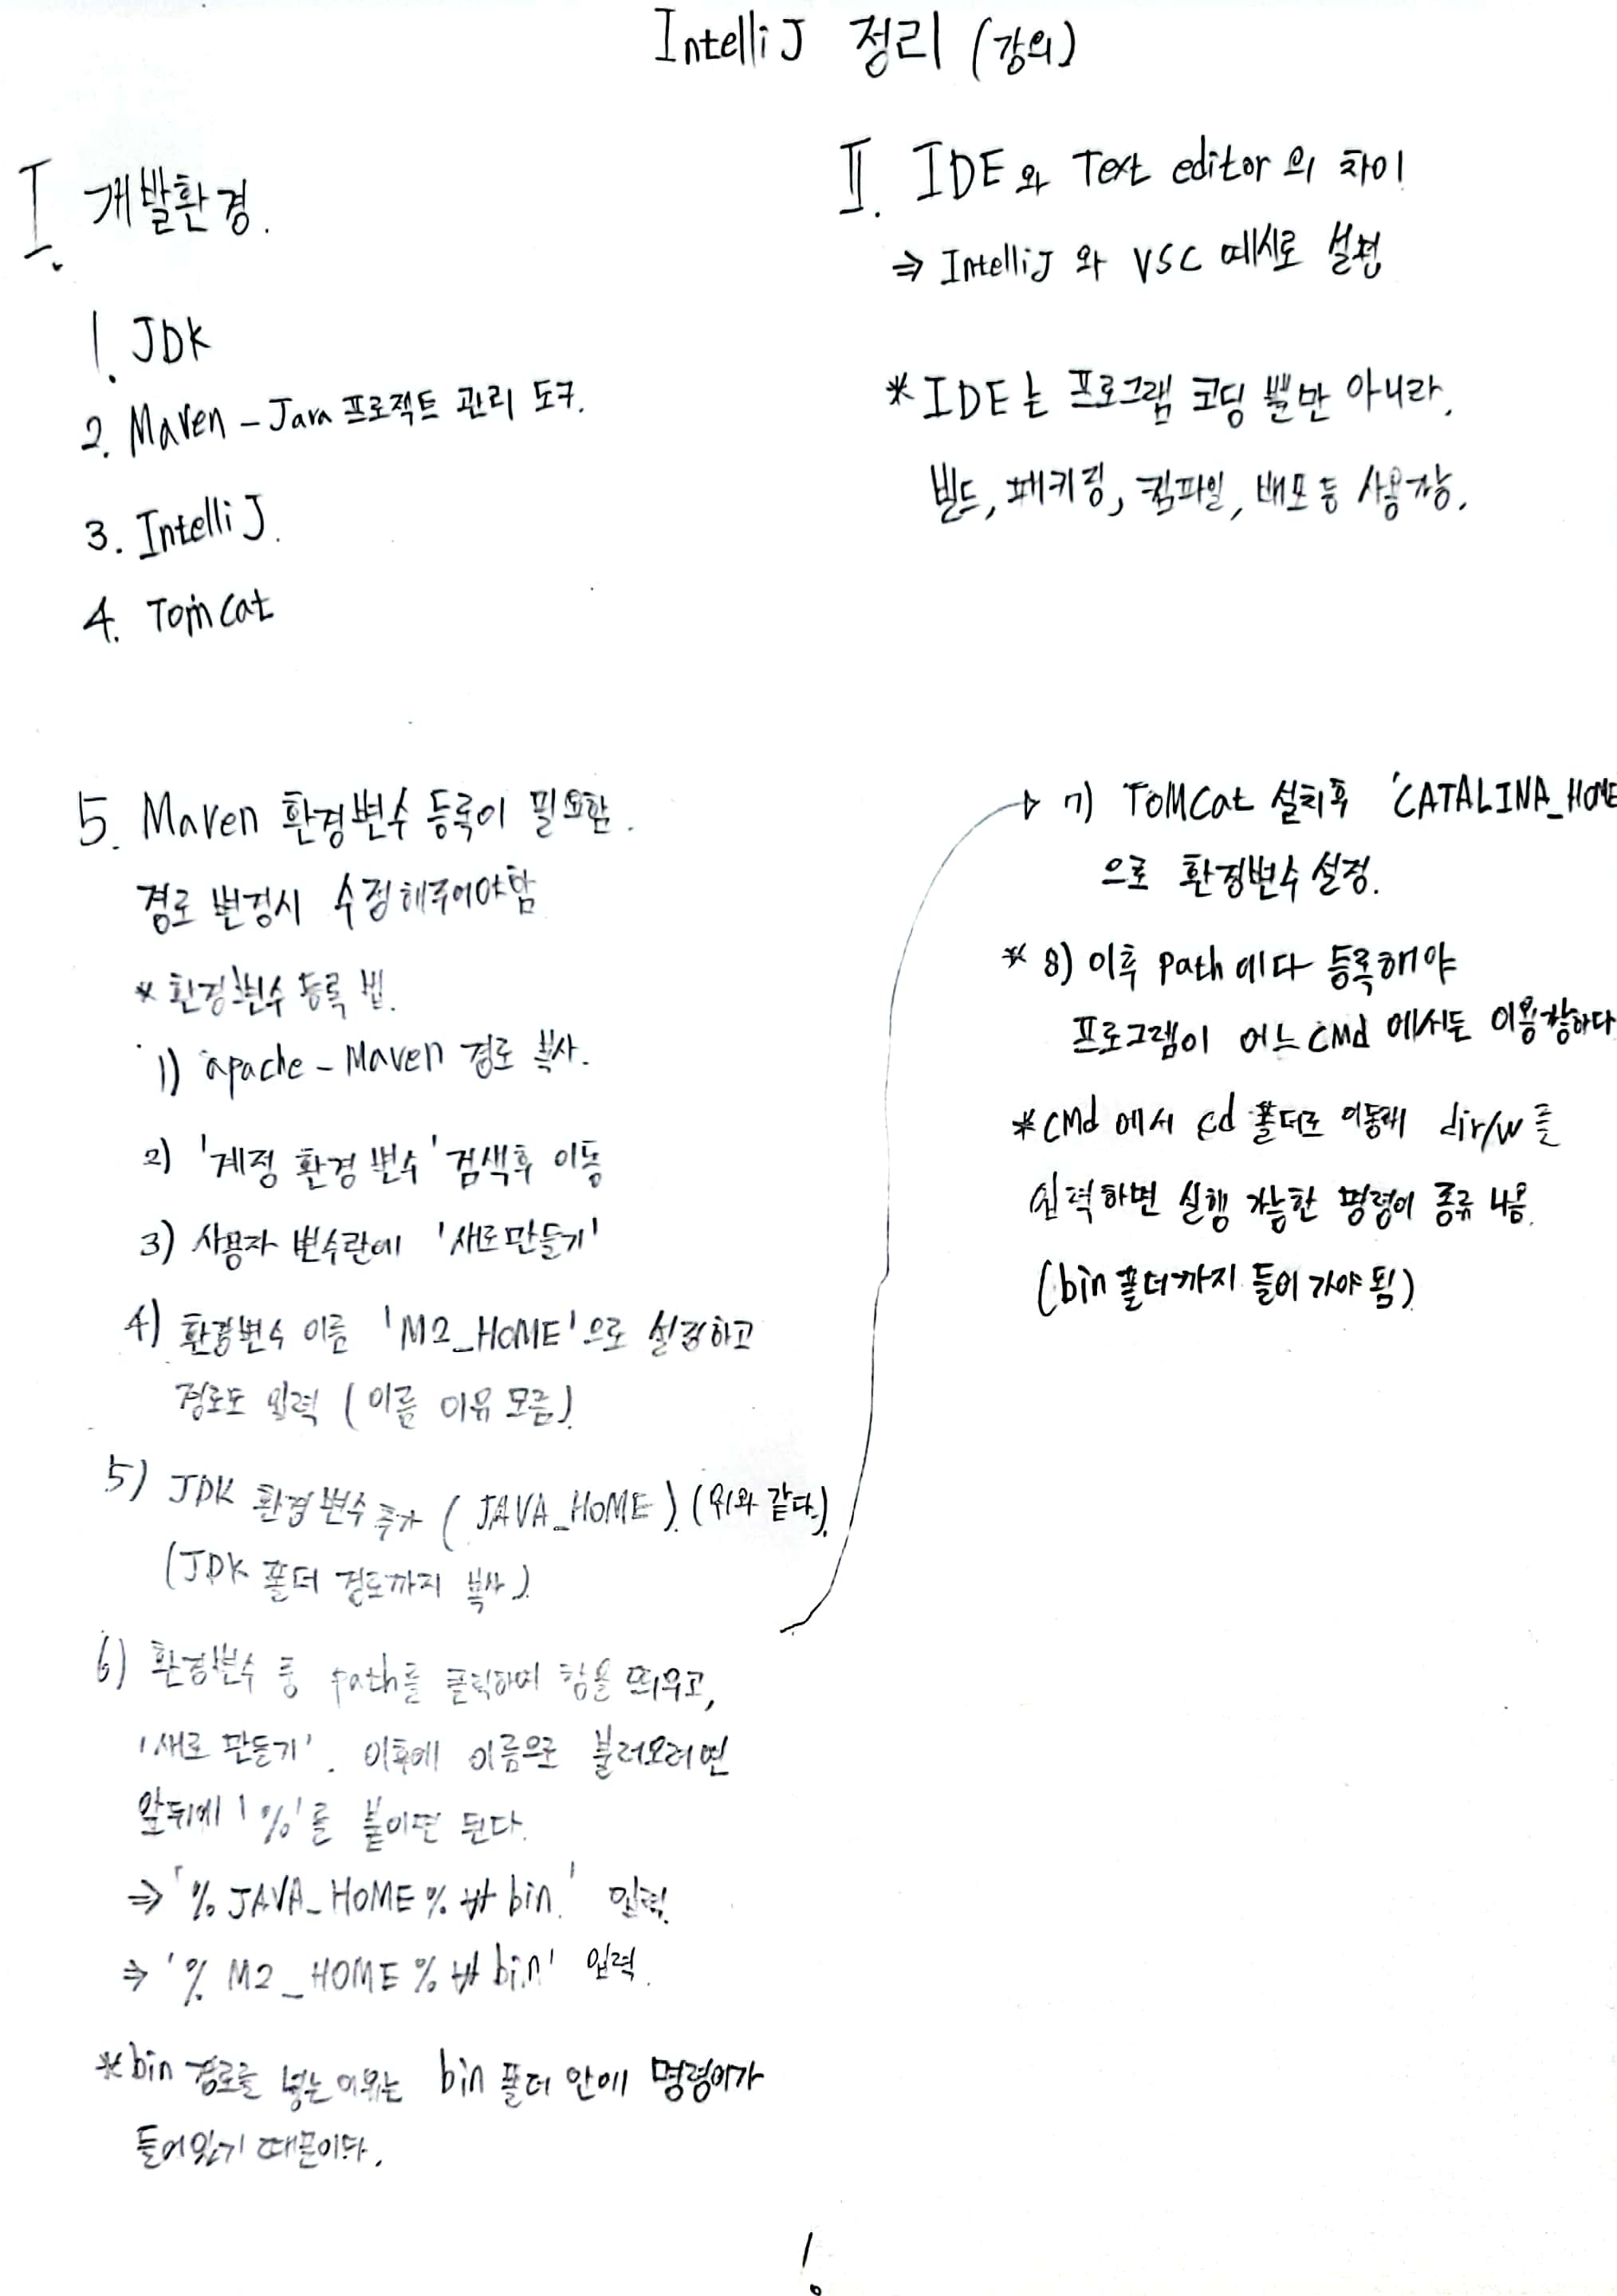 IntelliJ 정리 (강의)
I. 개발환경.
1. JDK
2. Maven - Java 프로젝트 관리 도구.
3. IntelliJ.
4. Tomcat
II. IDE와 Text editor의 차이
⇒ IntelliJ와 VSC 예시로 설명
* IDE는 프로그램 코딩 뿐만 아니라,
빌드, 패키징, 컴파일, 배포 등 사용가능.
5. Maven 환경변수 등록이 필요함.
경로 변경시 수정해주어야함
* 환경변수 등록 법.
1) apache - Maven 경로 복사.
2) '계정 환경 변수' 검색후 이동
3) 사용자 변수란에 '새로만들기'
4) 환경변수 이름 'M2_HOME'으로 설정하고
경로도 입력 (이름 이유 모름).
5) JDK 환경변수 추가 (JAVA_HOME). (위와 같다).
(JDK 폴더 경로까지 복사).
6) 환경변수 중 path를 클릭하여 창을 띄우고,
'새로 만들기'. 이후에 이름으로 불러오려면
앞뒤에 '%'를 붙이면 된다.
⇒ '%JAVA_HOME%₩bin.' 입력.
⇒ '%M2_HOME%₩bin' 입력.
* bin 경로를 넣는 이유는 bin 폴더 안에 명령어가
들어있기 때문이다.
7) TomCat 설치후 'CATALINA_HOME
으로 환경변수 설정.
* 8) 이후 path에다 등록해야
프로그램이 어느 CMd에서든 이용가능하다
* CMd에서 cd 폴더로 이동해 dir/w를
입력하면 실행 가능한 명령어 종류 나옴.
(bin 폴더까지 들어가야 됨).
1.